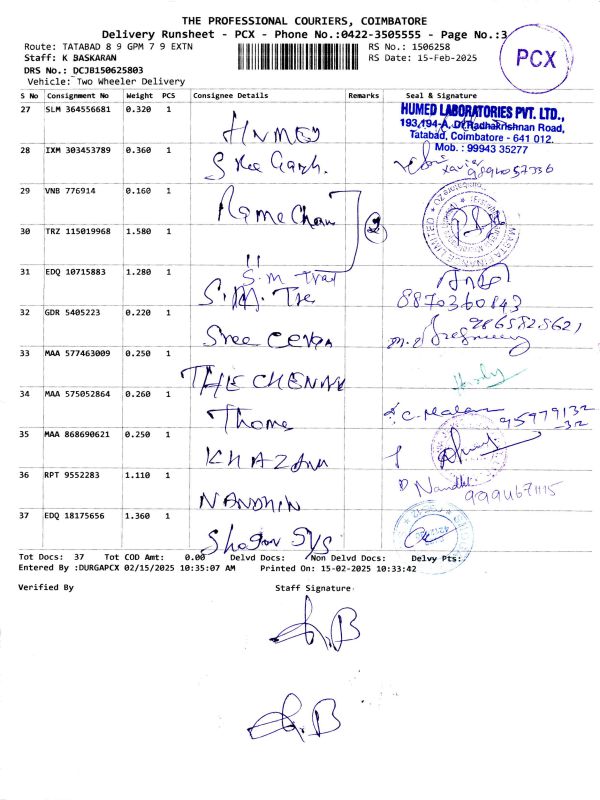 THE PROFESSIONAL COURIERS, COIMBATORE
Delivery Runsheet - PCX - Phone No.:0422-3505555 - Page No.:3
PCX
Route: TATABAD 8 9 GPM 7 9 EXTN RS No.: 1506258
Staff: K BASKARAN RS Date: 15-Feb-2025
DRS No.: DCJB150625803
Vehicle: Two Wheeler Delivery
S No Consignment No Weight PCS Consignee Details Remarks Seal & Signature
27 SLM 364556681 0.320 1
HUMED LABORATORIES PVT. LTD.,
193,194-A, Dr.Radhakrishnan Road,
Tatabad, Coimbatore - 641 012.
Mob. : 99943 35277
28 IXM 303453789 0.360 1 Sree Ganh.
xavier
9894057336
29 VNB 776914 0.160 1 Rame Chan
30 TRZ 115019968 1.580 1 2
" S.M Trad
31 EDQ 10715883 1.280 1 S.M. Tre
8870360843
32 GDR 5405223 0.220 1 Sree
9865525621
33 MAA 577463009 0.250 1 THE CHENNAI
34 MAA 575052864 0.260 1 Thome
95979132
32
35 MAA 868690621 0.250 1 KHAZANA
36 RPT 9552283 1.110 1 NANDHIN
Nandhi
9994671115
37 EDQ 18175656 1.360 1 Shogun SYS
Tot Docs: 37 Tot COD Amt: 0.00 Delvd Docs: Non Delvd Docs: Delvy Pts:
Entered By :DURGAPCX 02/15/2025 10:35:07 AM Printed On: 15-02-2025 10:33:42
Verified By Staff Signature